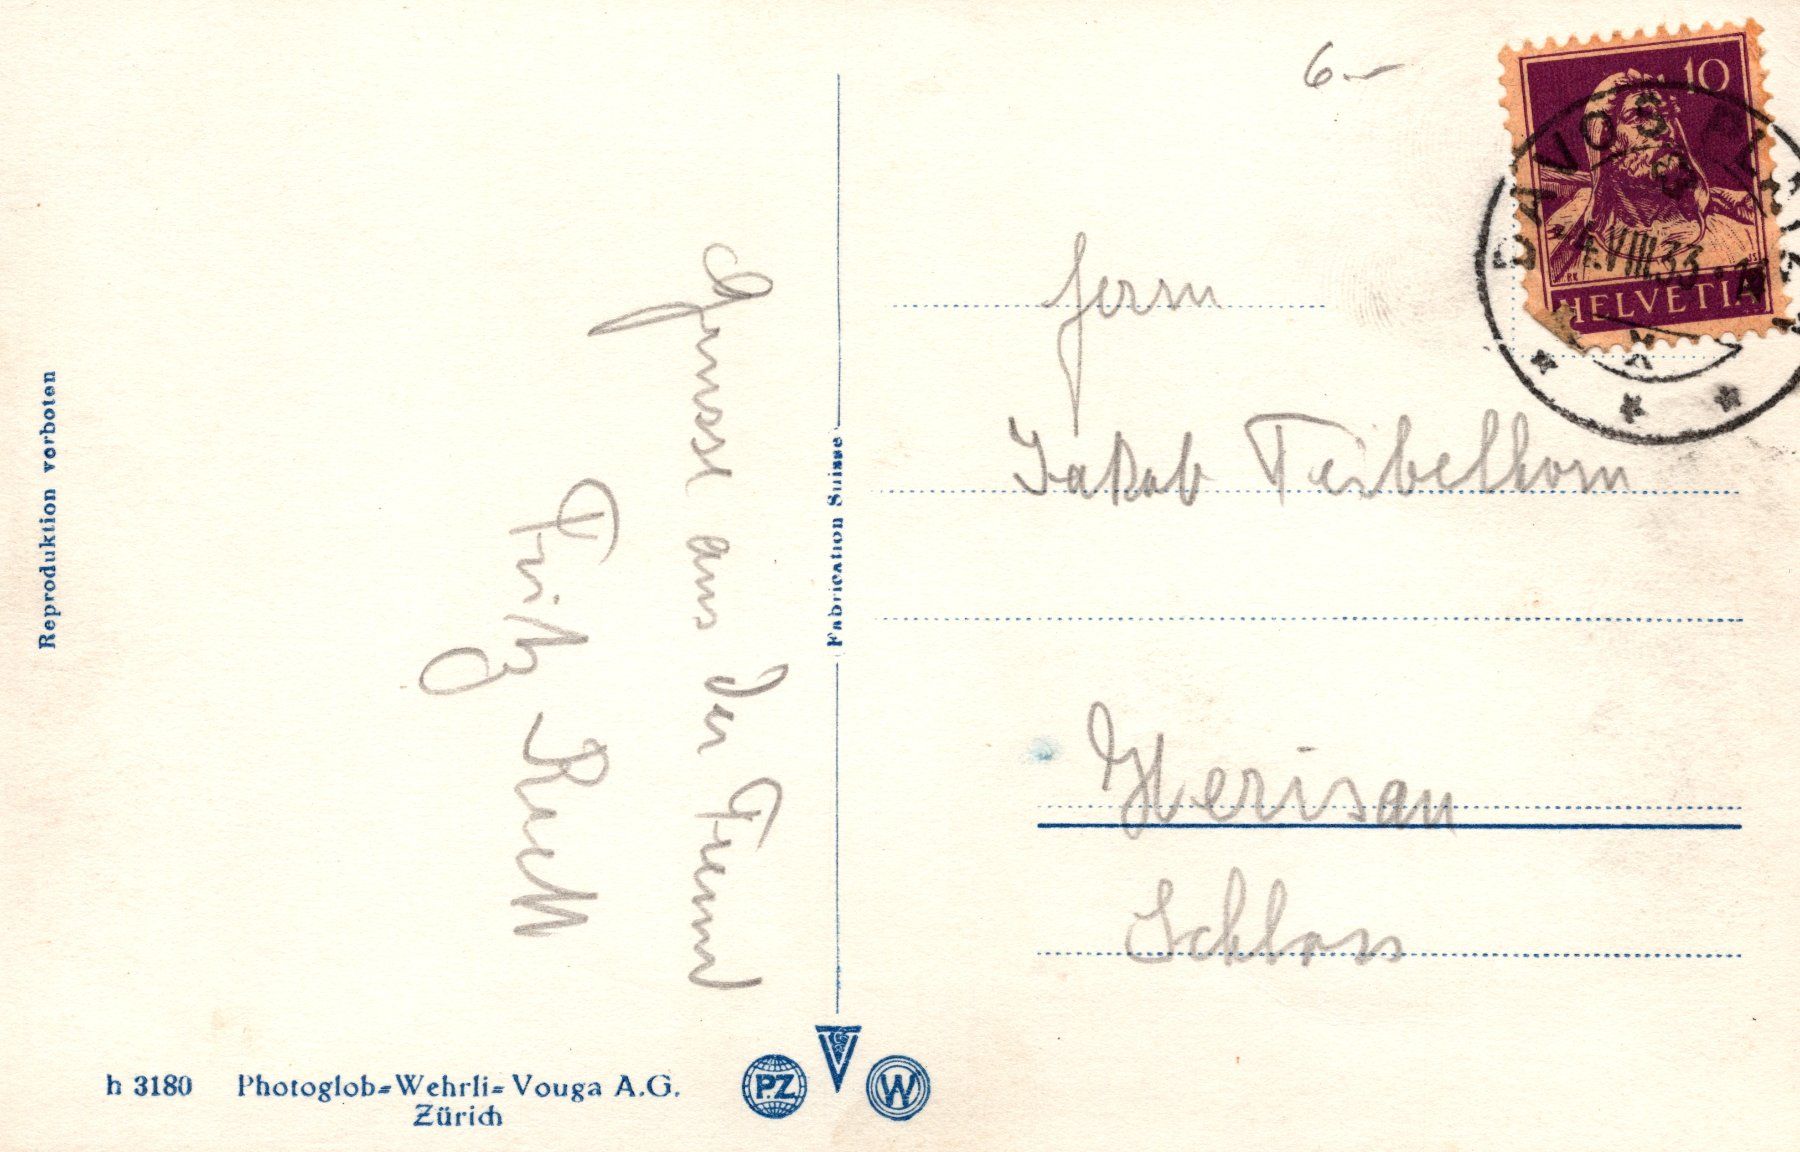 Reproduktion verboten
Grüsse aus der
Fritz
h 3180 Photoglob-Wehrli-Vouga A.G.
Zürich
Fabrication Suisse
PZ
V
W
6.-
10
HELVETIA
DAVOS PLATZ
4.VIII.33
Herrn
Jakob
Herisau
Schloss